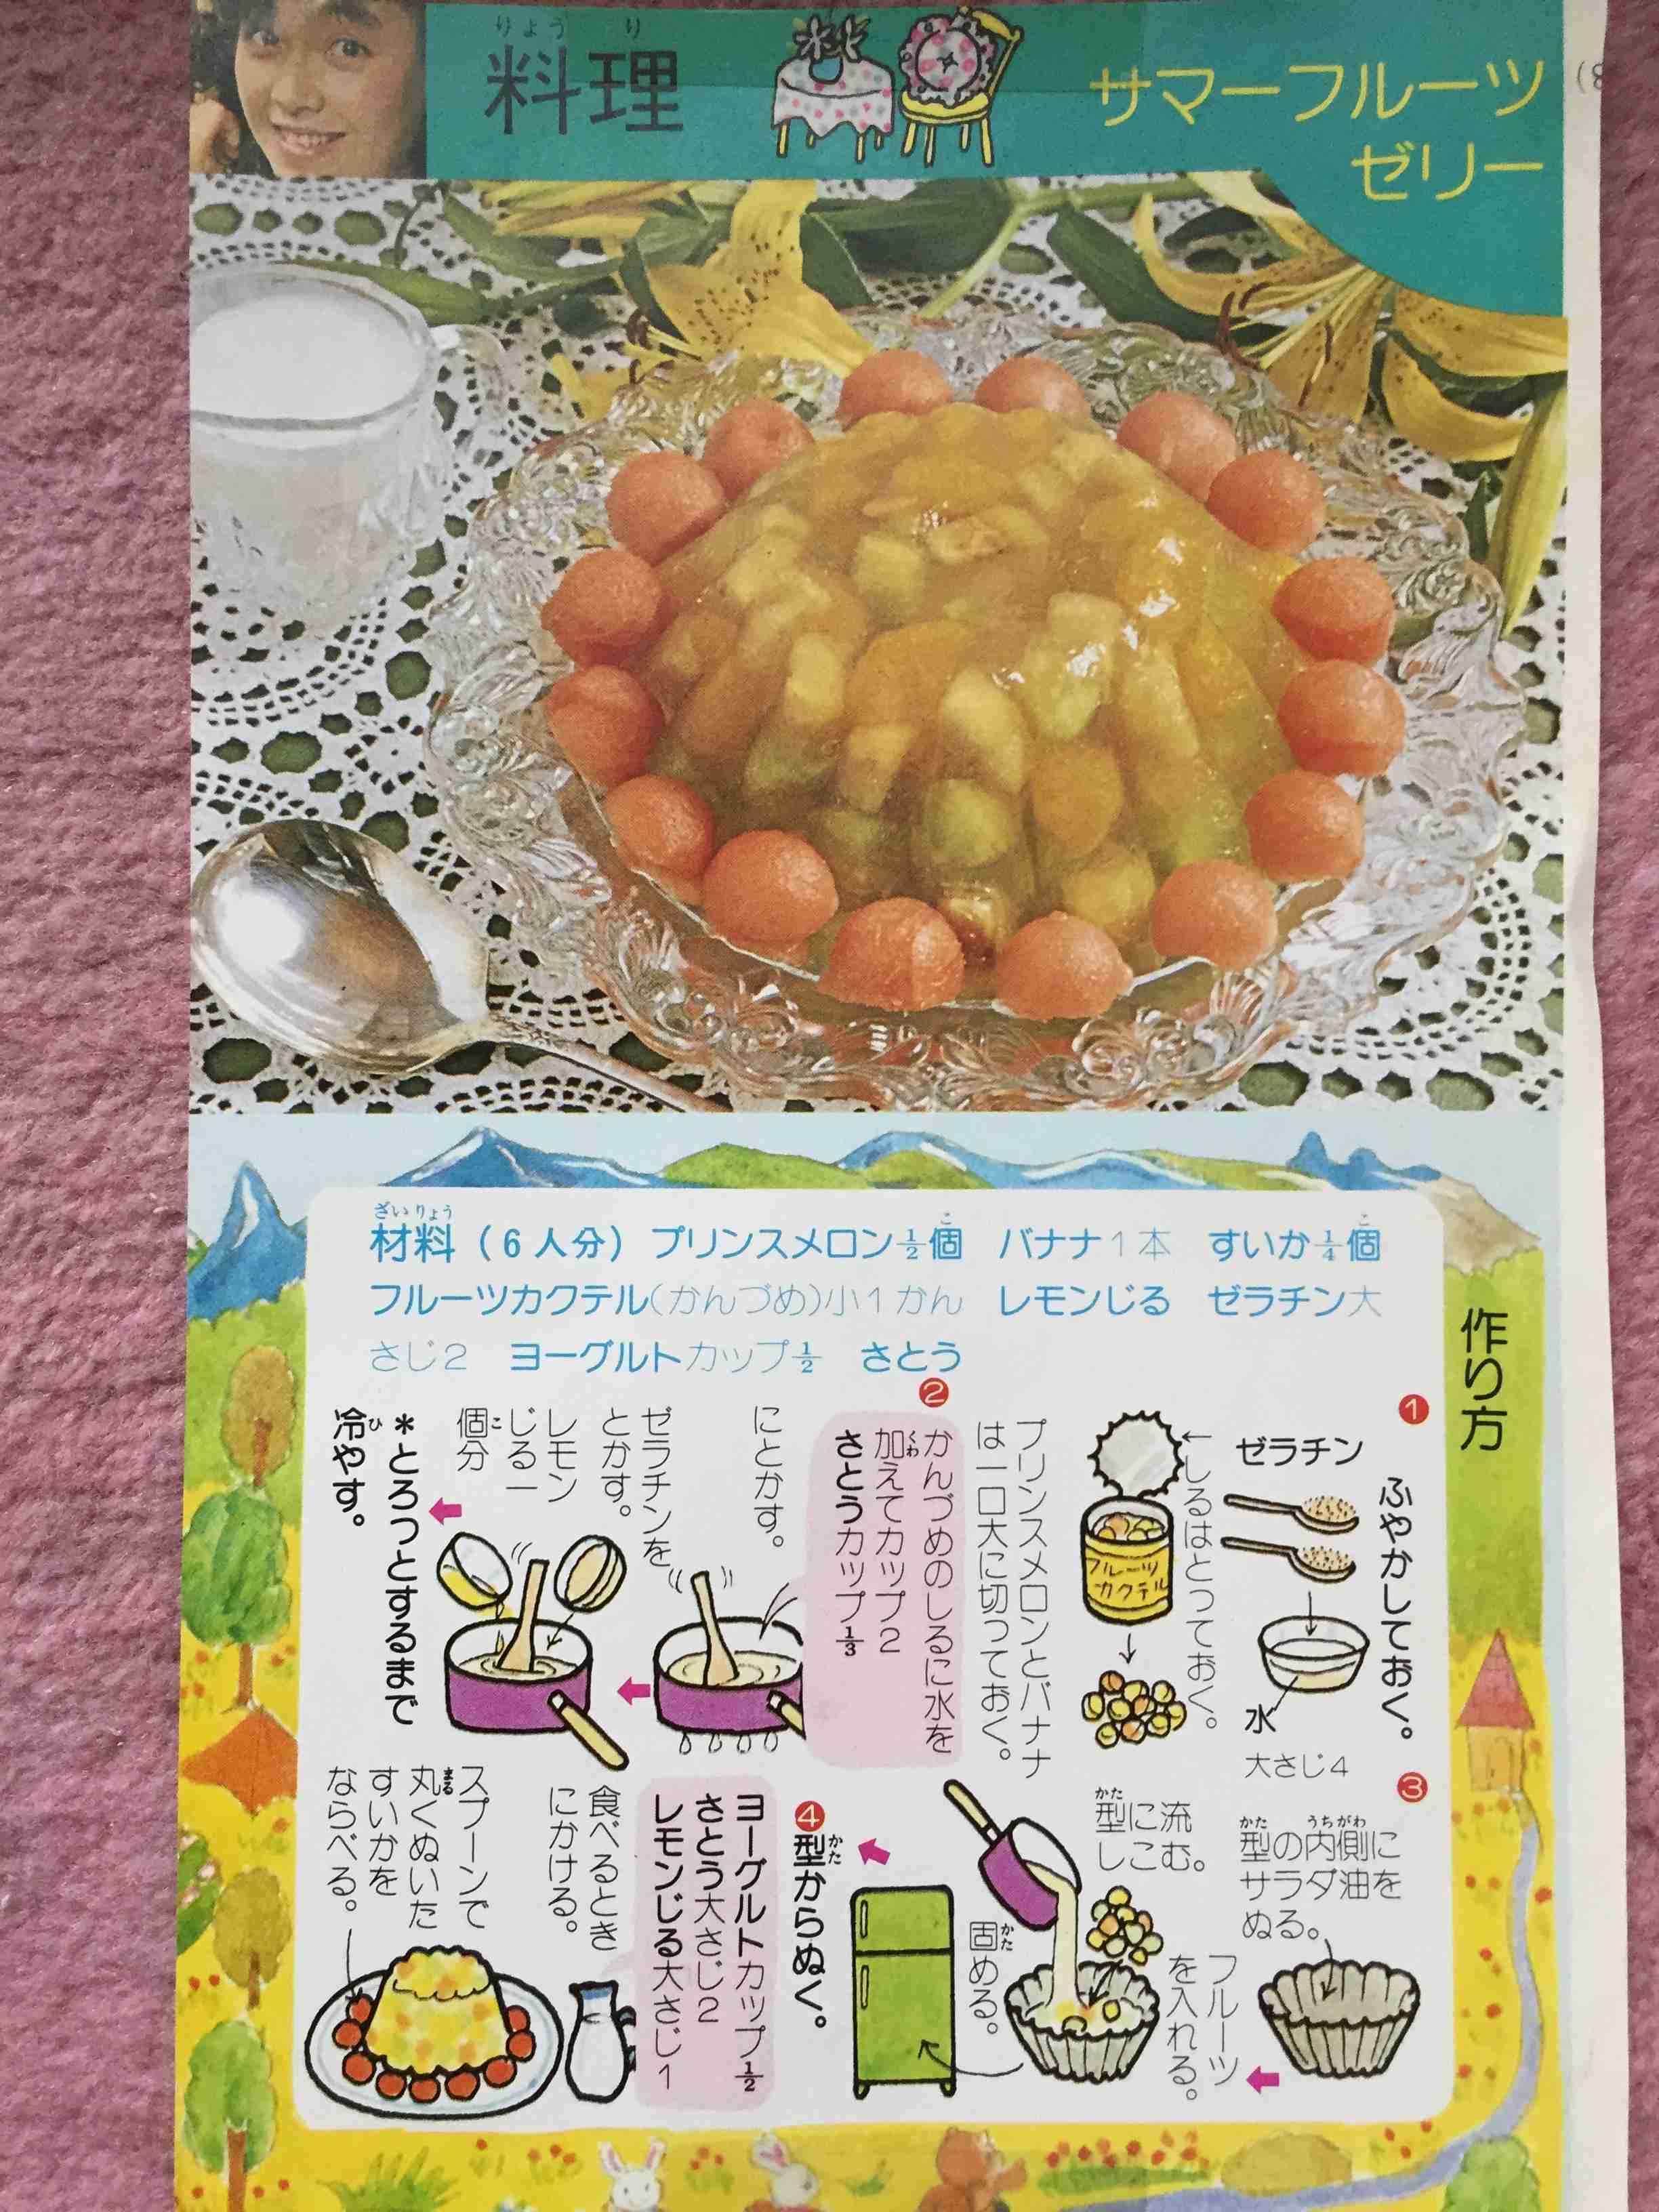 りょうり
料理
サマーフルーツ
ゼリー
ざいりょう
材料(6人分) プリンスメロン½個 バナナ1本 すいか¼個
フルーツカクテル(かんづめ)小1かん レモンじる ゼラチン大
さじ2 ヨーグルトカップ½ さとう
作り方
❶
ふやかしておく。
ゼラチン
水
大さじ4
←しるはとっておく。
フルーツ
カクテル
プリンスメロンとバナナ
は一口大に切っておく。
❷
かんづめのしるに水を
加えてカップ2
さとうカップ⅓
にとかす。
ゼラチンを
とかす。
レモン
じる一
個分
*とろっとするまで
冷やす。
❸
型の内側に
サラダ油を
ぬる。
フルーツ
を入れる。
型に流
しこむ。
固める。
❹型からぬく。
ヨーグルトカップ½
さとう大さじ2
レモンじる大さじ1
食べるとき
にかける。
スプーンで
丸くぬいた
すいかを
ならべる。